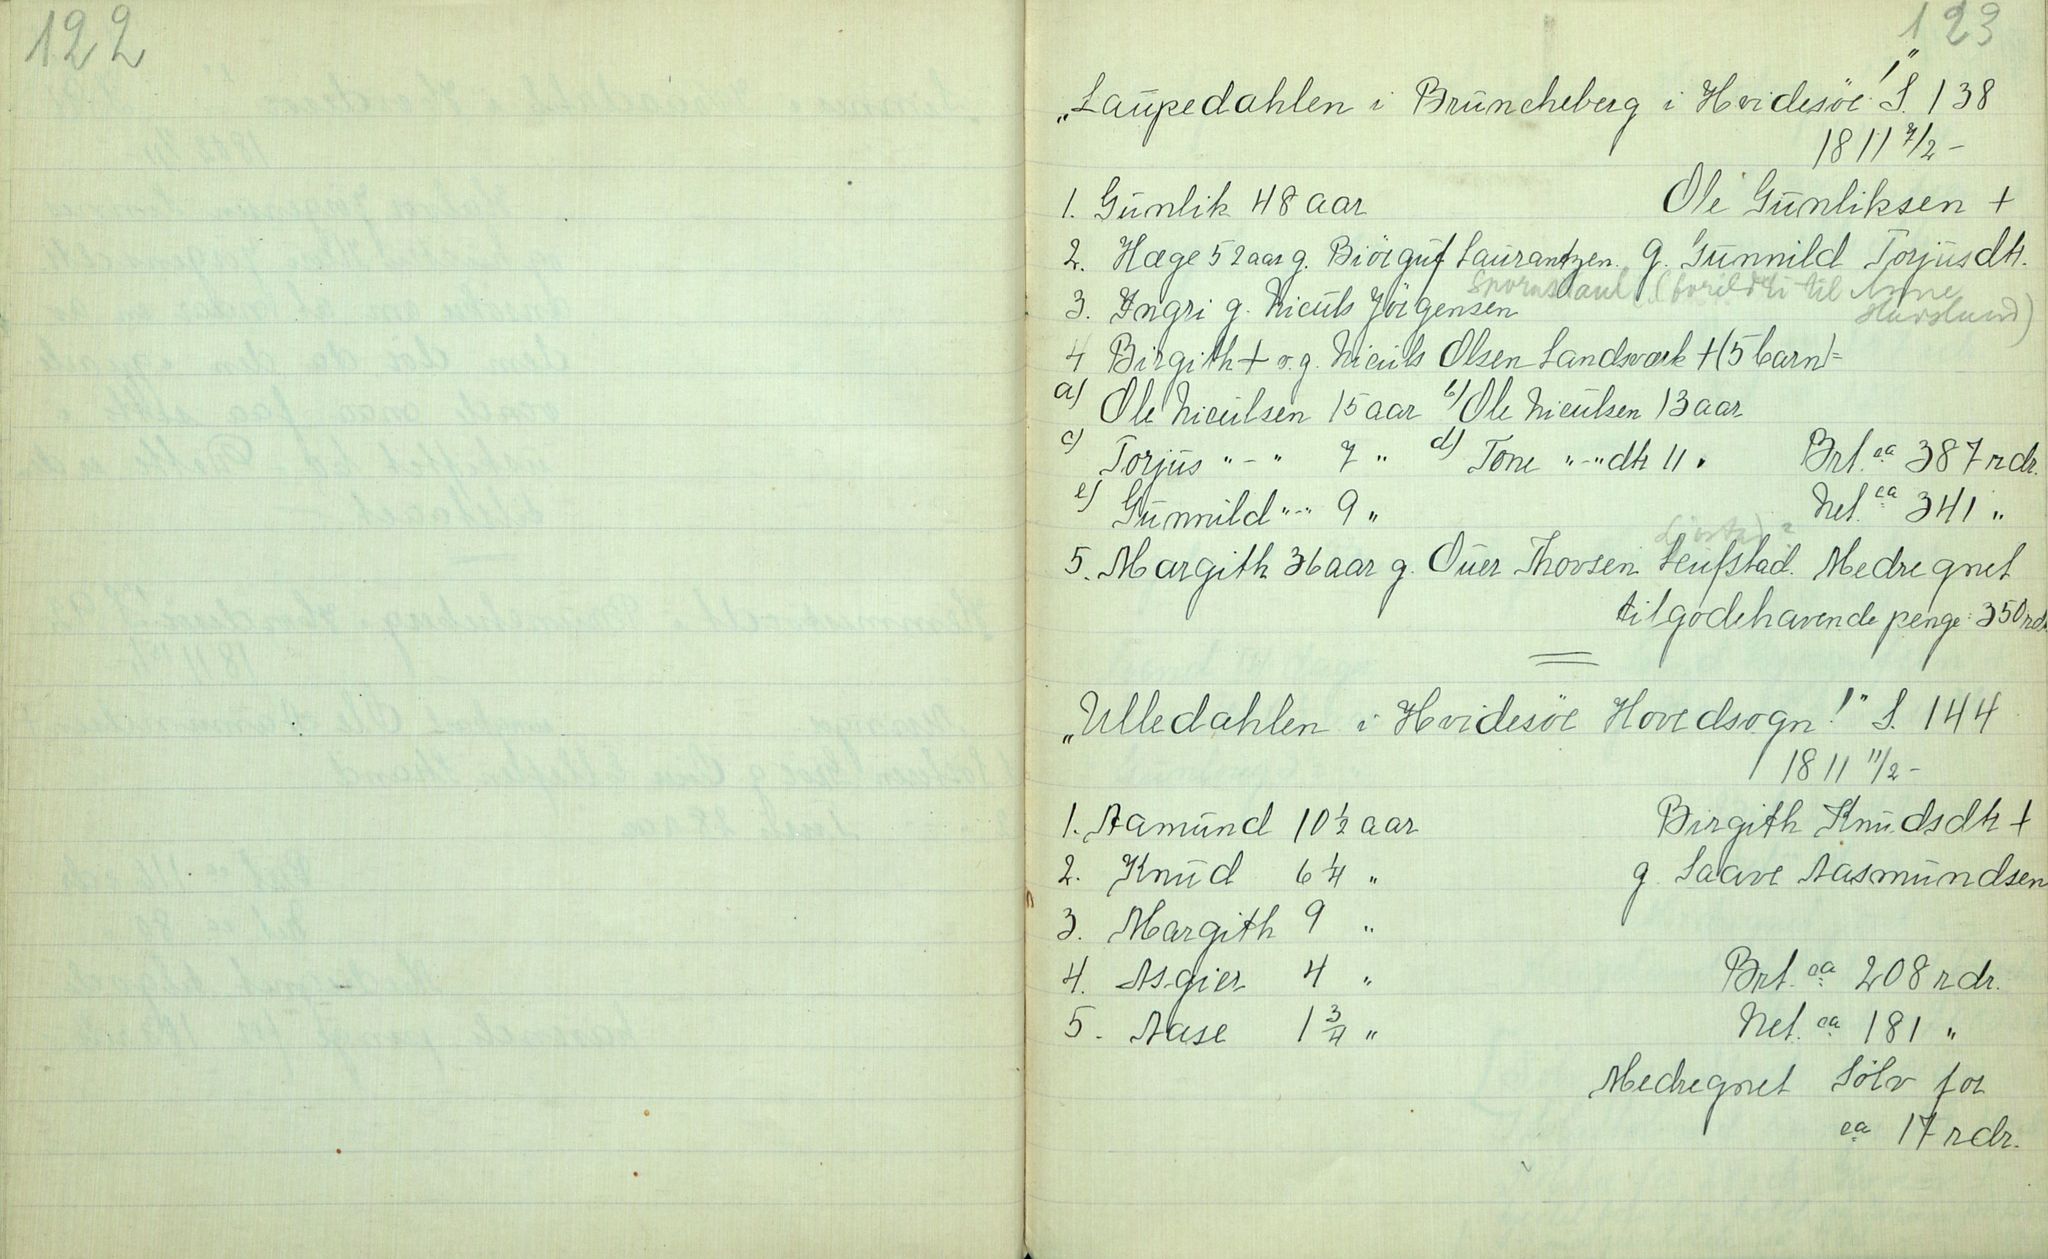 122
123
„Laupedahlen i Brüncheberg i Hvidesöe!" S. 138
1811 7/2 -
1. Günlik 48 aar
Ole Günliksen +
2. Hæge 52 aar g. Biörguf Laurantzen. g. Günnild Torjüsdtr.
til Anne
3. Ingri g. Nieüls Jörgensen
4 Birgith + v. g. Nieüls Olsen Landsværk + (5 barn) =
a) Ole Nieülsen 15 aar b) Ole Nieülsen 13 aar
c) Torjüs "-" 7 " d) Tone "-" dtr 11 " Brt. ca 387 rdr.
e) Günnild "-" 9 " Net. ca 341 "
5. Margith 36 aar g. Ouer Thovsen Leufstad. Medregnet
tilgodehavende penge: 350 rdr.
„Ulledahlen i Hvidesöe Hovedsogn!" S. 144
1811 11/2 -
1. Aamünd 10 1/2 aar Birgith Knüdsdtr +
2. Knüd 6 1/4 " g. Saave Aasmündsen
3. Margith 9 "
4. Asgier 4 " Brt. ca 208 rdr.
5. Aase 1 3/4 " Net. ca 181 "
Medregnet Sölv for
ca 17 rdr.